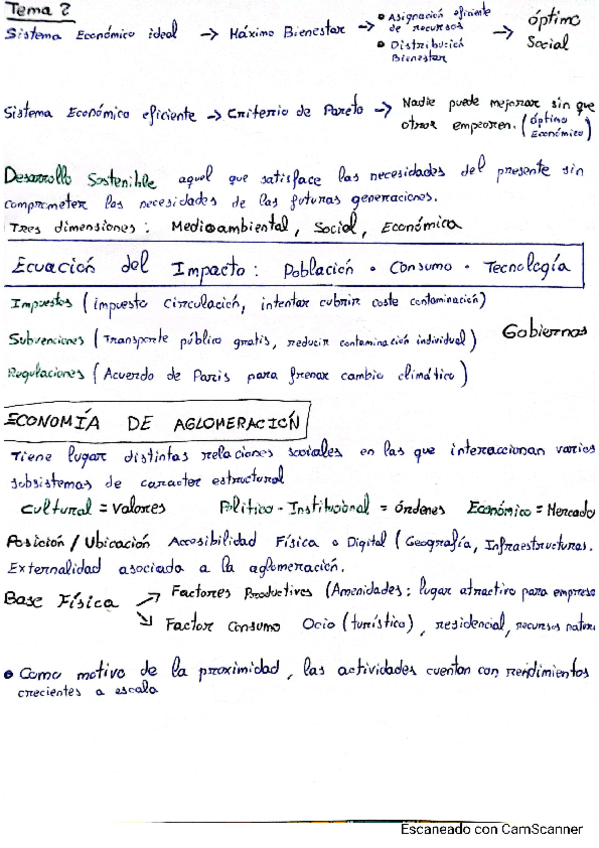 Tema 2
Sistema Económico ideal → Máximo Bienestar → • Asignación eficiente de recursos
• Distribución Bienestar
→ óptimo Social
Sistema Económico eficiente → Criterio de Pareto → Nadie puede mejorar sin que
otros empeoren. (óptimo Económico)
Desarrollo Sostenible aquel que satisface las necesidades del presente sin
comprometer las necesidades de las futuras generaciones.
Tres dimensiones: Medioambiental, Social, Económica
Ecuación del Impacto: Población • Consumo • Tecnología
Impuestos (impuesto circulación, intentar cubrir coste contaminación)
Subvenciones (Transporte público gratis, reducir contaminación individual)
Gobiernos
Regulaciones (Acuerdo de París para frenar cambio climático)
ECONOMÍA DE AGLOMERACIÓN
Tiene lugar distintas relaciones sociales en las que interaccionan varios
subsistemas de caracter estructural
Cultural = Valores Político - Institucional = órdenes Económico = Mercado
Posición / Ubicación Accesibilidad Física o Digital (Geografía, Infraestructuras.
Externalidad asociada a la aglomeración.
Base Física → Factores Productivos (Amenidades: lugar atractivo para empresa
↘ Factor Consumo Ocio (turístico), residencial, recursos natur
• Como motivo de la proximidad, las actividades cuentan con rendimientos
crecientes a escala
Escaneado con CamScanner